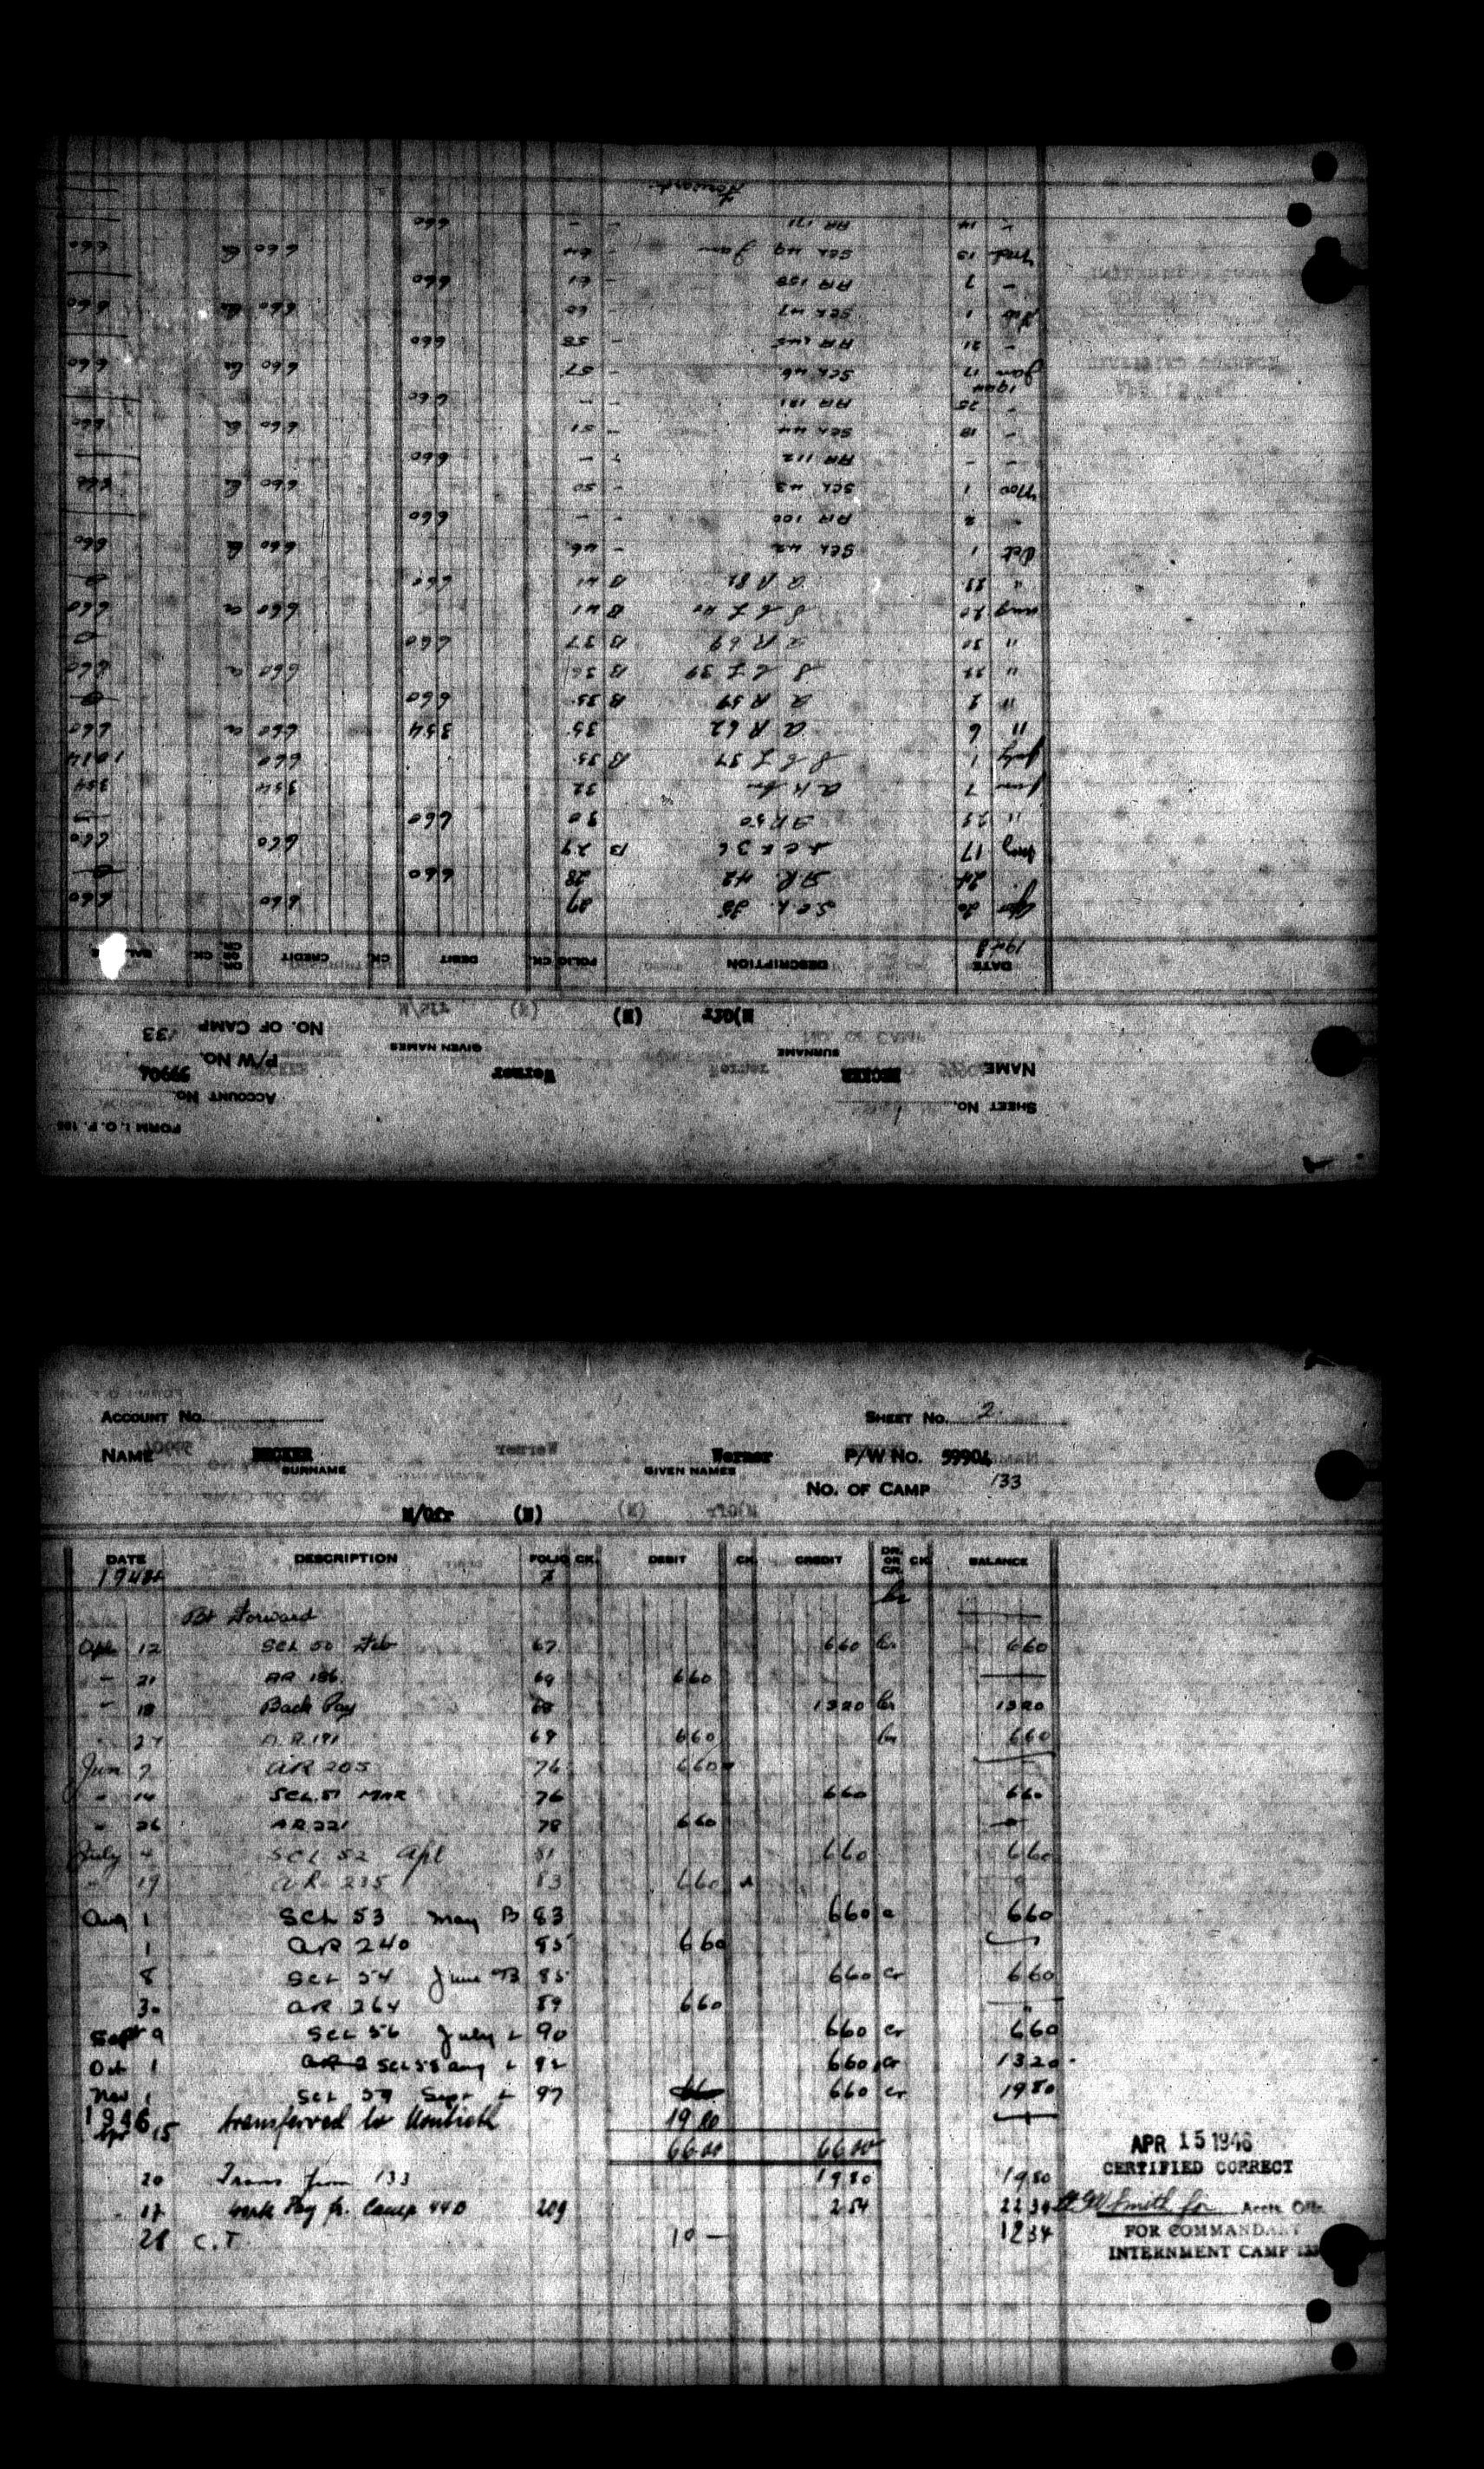 FORM I. O. P. 106
SHEET No. 1 ACCOUNT No.
NAME BECKER Werner P/W No. 59904
SURNAME GIVEN NAMES
NO. OF CAMP 133
M/Ofr (N)
DATE DESCRIPTION FOLIO CK. DEBIT CK. CREDIT DR. OR CR. CK.
1943
Apr 20 SCL 35 27 660 660
24 AR. 42 28 660
May 17 36 B 29 660 660
" 29 AR 50 30 660
June 7 32 354 354
July 1 S C L 37 B 35 660 1014
" 6 A R 62 35 354 660 660
" 2 A R 59 B 35 660
" 22 S C L 39 B 36 660 660
" 30 A R 69 B 37 660
Aug 20 S C L 40 B 41 660 660
" 23 A R 81 B 41 660
Oct 1 SCL 42 - 46 660 660
- 2 AR 100 - - 660
Nov 1 SCL 43 - 50 660 660
- - AR 112 - - 660
- 18 SCL 44 - 51 660 660
- 25 AR 121 - - 660
1944
Jan 17 SCL 46 - 57 660 660
- 21 AR 145 - 58 660
Feb 1 SCL 47 - 60 660 660
- 7 AR 155 - 61 660
Mch 13 SCL 49 Jan - 64 660 660
- 14 AR 171 - - 660
Forward
ACCOUNT No. SHEET No. 2
NAME BECKER Werner P/W No. 59904
SURNAME GIVEN NAMES
NO. OF CAMP 133
M/Ofr (N)
DATE DESCRIPTION FOLIO CK. DEBIT CK. CREDIT DR. OR CR. CK. BALANCE
1944
Bt Forward
Apl 12 SCL 50 Feb 67 660 Cr 660
- 21 AR 186 69 660
- 18 Back Pay 68 1320 Cr 1320
27 A.R. 191 69 660 Cr 660
Jun 7 AR 205 76 660
- 14 SCL 51 MAR 76 660 660
- 26 AR 221 78 660
July 4 SCL 52 Apl 81 660 660
19 AR 235 83 660
Aug 1 SCL 53 May B 83 660 660
1 AR 240 85 660
8 SCL 54 June B 85 660 cr 660
30 AR 264 89 660
Sept 9 SCL 56 July L 90 660 cr 660
Oct 1 SCL 58 Aug L 92 660 cr 1320
Nov 1 SCL 59 Sept L 97 660 cr 1980
1946
Apr 15 transferred to Monteith 1980
6600 6600
20 Trans from 133 1980 1980
17 Work Pay fr. Camp 44D 209 254 2234
28 C.T. 10 — 1234
APR 15 1946
CERTIFIED CORRECT
Smith for Accts Ofr.
FOR COMMANDANT
INTERNMENT CAMP 133